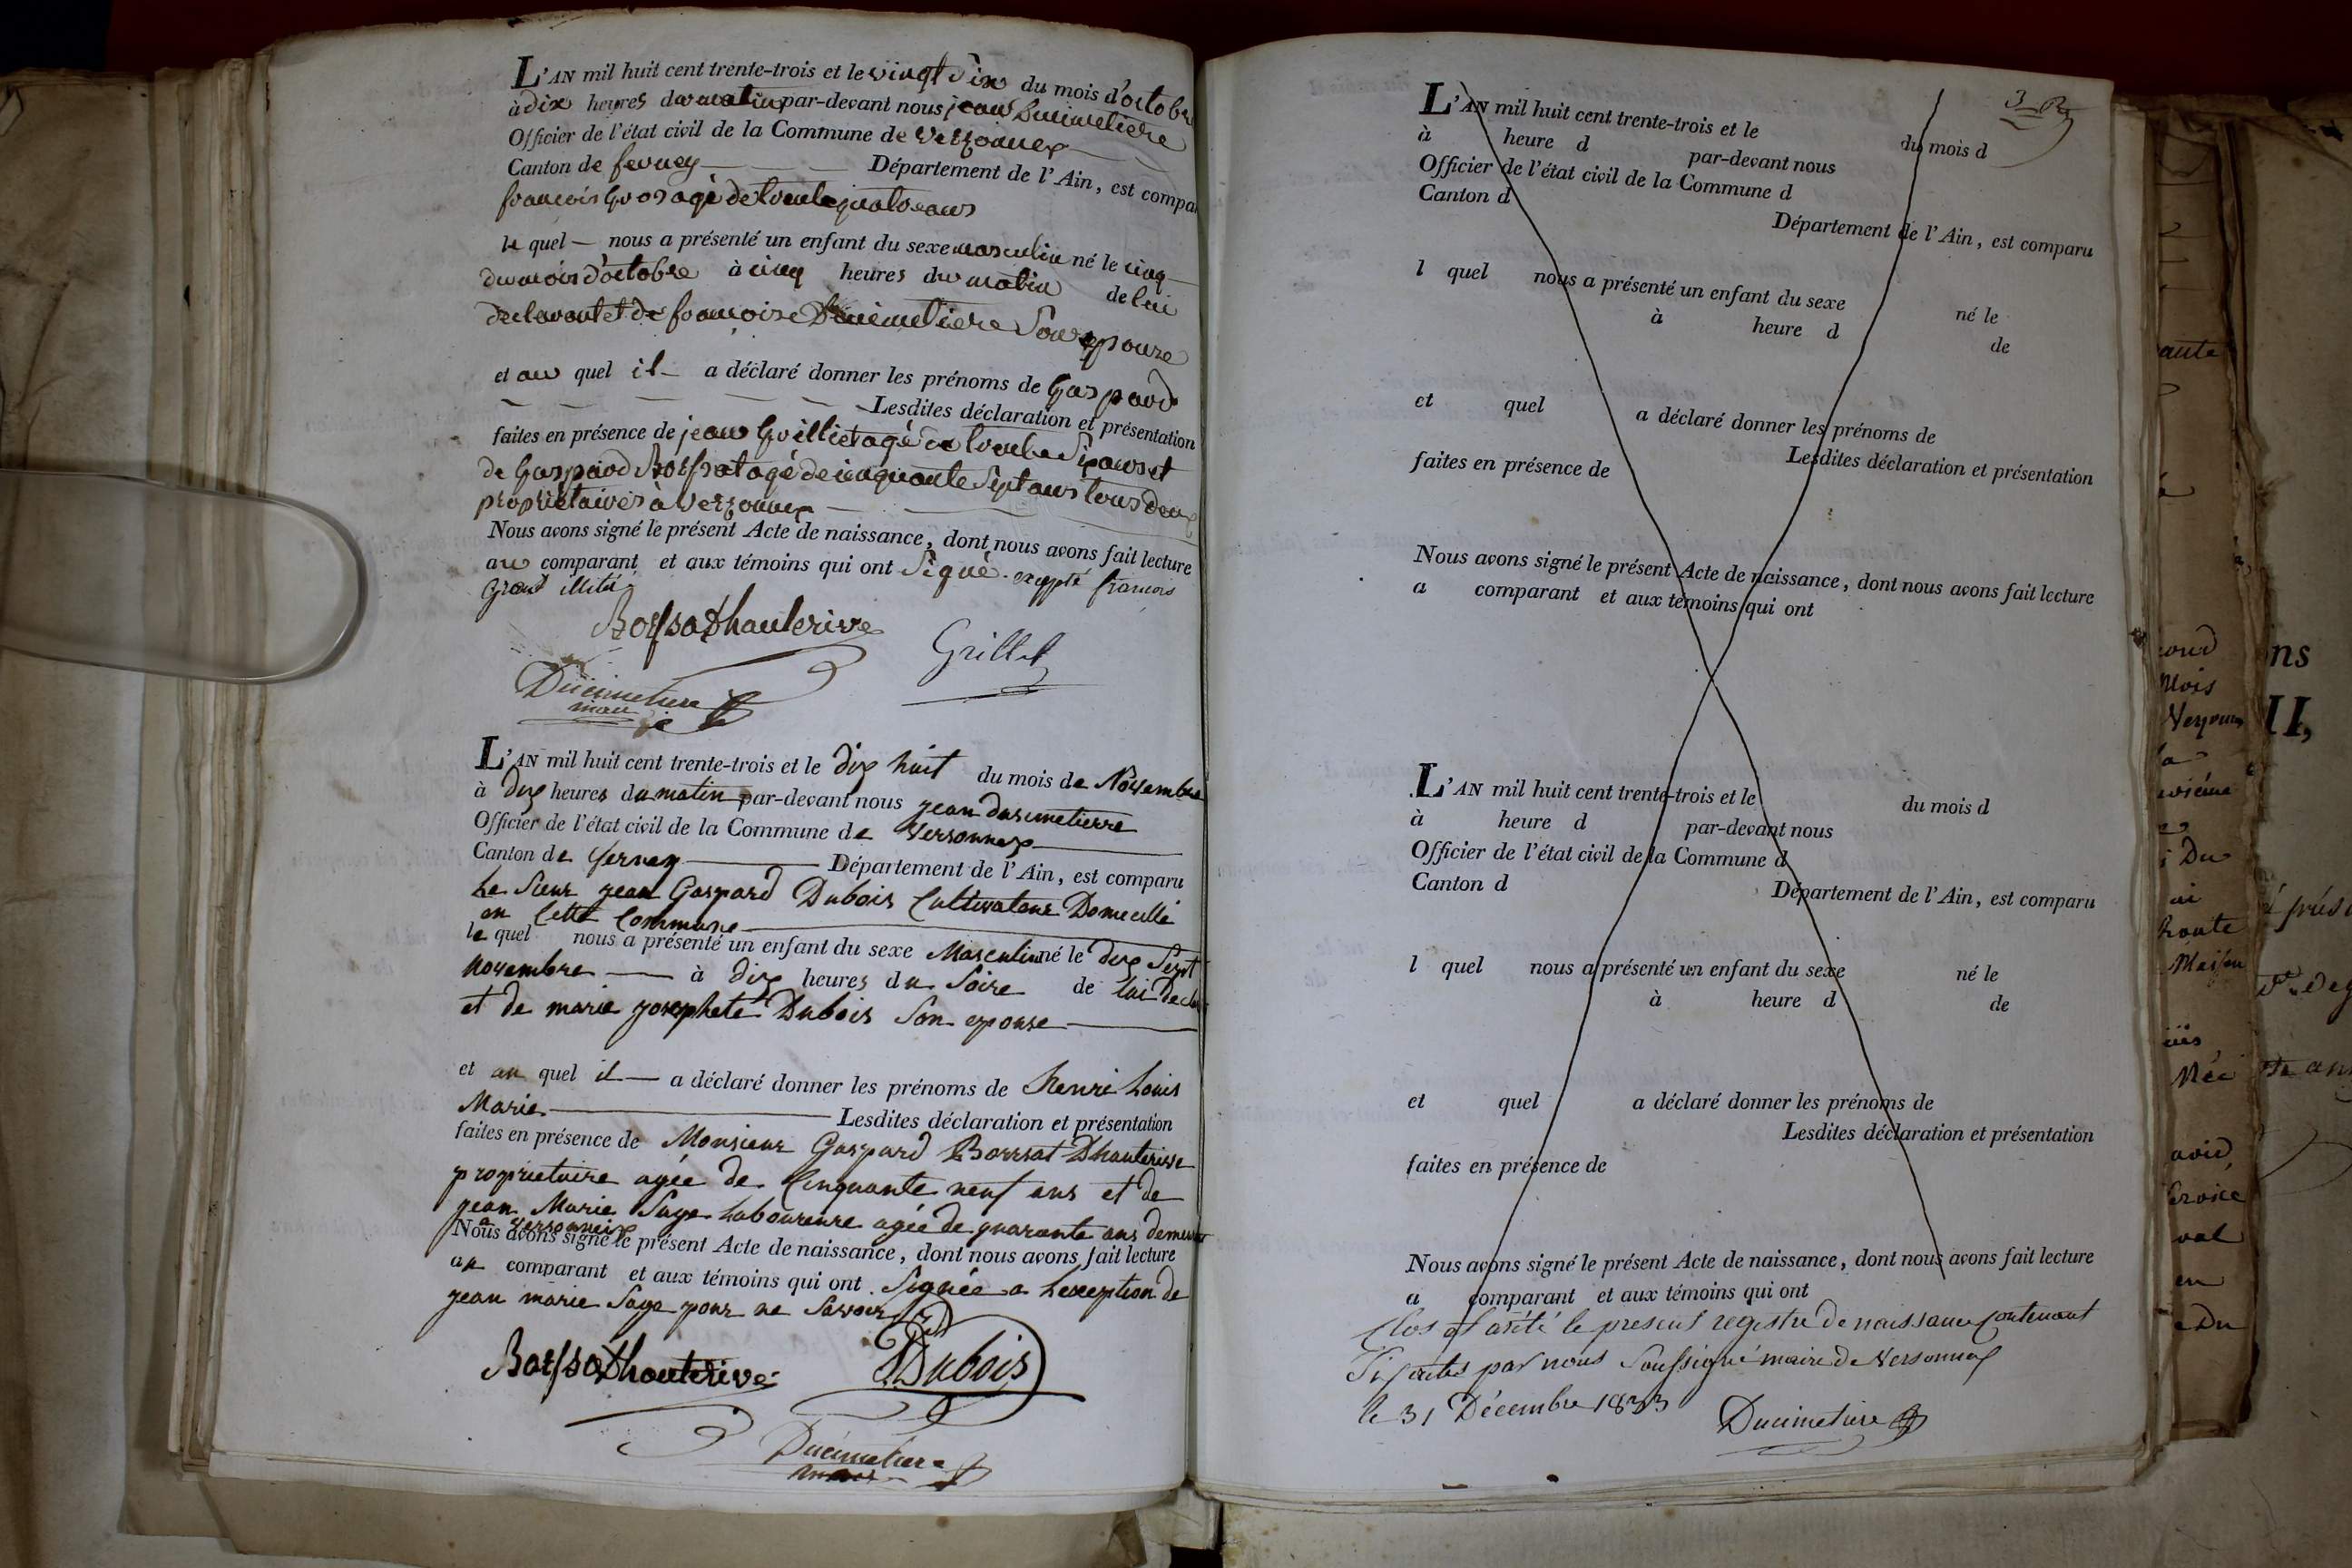 L'AN mil huit cent trente-trois et le vingt Six du mois d'octobre
à dix heures du matin par-devant nous jean Ducimetiere
Officier de l'état civil de la Commune de Verzonnex
Canton de ferney Département de l'Ain, est compa
francois Gros agé de trente quatre ans
le quel — nous a présenté un enfant du sexe masculin né le cinq
du mois d'octobre à cinq heures du matin de lui
declarant et de francoise Ducimetiere Son epouze
et au quel il — a déclaré donner les prénoms de Gaspard
Lesdites déclaration et présentation
faites en présence de jean Grilliet agé de trente Six ans et
de Gaspard Borssat agé de cinquante Sept ans tous deux
propriétaires à Verzonnex
Nous avons signé le présent Acte de naissance, dont nous avons fait lecture
au comparant et aux témoins qui ont Signé. excepté francois
Gros
Borssat Dhauterive
Grillet
Ducimetiere
maire
L'AN mil huit cent trente-trois et le dix huit du mois de Novembre
à dix heures du matin par-devant nous jean ducimetierre
Officier de l'état civil de la Commune de Versonnex
Canton de ferney Département de l'Ain, est comparu
Le Sieur jean Gaspard Dubois Cultivateur Domecillié
en Cette Commune
le quel nous a présenté un enfant du sexe Masculin né le dix Sept
novembre à dix heures du Soire de lui Decla
et de marie josephete Dubois Son epouse
et au quel il — a déclaré donner les prénoms de henri Louis
Marie Lesdites déclaration et présentation
faites en présence de Monsieur Gaspard Borssat Dhauterive
proprietaire agée de Cinquante neuf ans et de
jean Marie Sage Laboureure agée de quarante ans demeur
a versonnex
Nous avons signé le présent Acte de naissance, dont nous avons fait lecture
au comparant et aux témoins qui ont Signée a Lexeption de
jean marie Sage pour ne Savoir
Borssat Dhauterive
Dubois
Ducimetiere
maire
3
L'AN mil huit cent trente-trois et le du mois d
à heure d par-devant nous
Officier de l'état civil de la Commune d
Canton d Département de l'Ain, est comparu
l quel nous a présenté un enfant du sexe né le
à heure d de
et quel a déclaré donner les prénoms de
Lesdites déclaration et présentation
faites en présence de
Nous avons signé le présent Acte de naissance, dont nous avons fait lecture
a comparant et aux témoins qui ont
L'AN mil huit cent trente-trois et le du mois d
à heure d par-devant nous
Officier de l'état civil de la Commune d
Canton d Département de l'Ain, est comparu
l quel nous a présenté un enfant du sexe né le
à heure d de
et quel a déclaré donner les prénoms de
Lesdites déclaration et présentation
faites en présence de
Nous avons signé le présent Acte de naissance, dont nous avons fait lecture
a comparant et aux témoins qui ont
Clos et arété le present registre de naissance contenant
Six actes par nous Soussigné maire de Versonnex
le 31 Décembre 1833
Ducimetiere